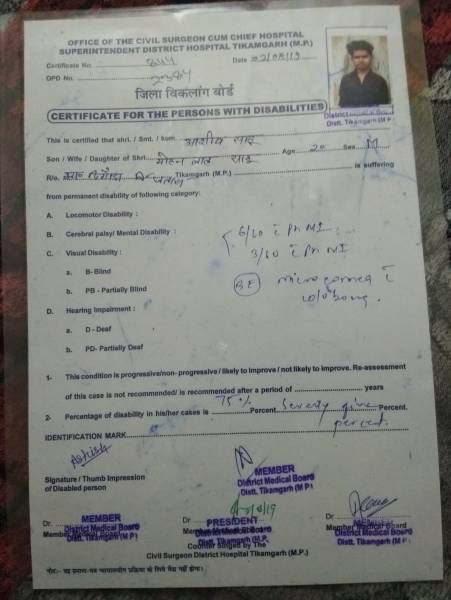 OFFICE OF THE CIVIL SURGEON CUM CHIEF HOSPITAL
SUPERINTENDENT DISTRICT HOSPITAL TIKAMGARH (M.P.)
Certificate No. 244 Date 22/08/19
OPD No.
जिला विकलांग बोर्ड
CERTIFICATE FOR THE PERSONS WITH DISABILITIES
District Medical Board
Distt. Tikamgarh (M.P.)
This is certified that shri. / Smt. / kum. आशीष साहू
Son / Wife / Daughter of Shri. मोहन लाल साहू Age 20 Sex M
R/o. Tikamgarh (M.P.) is suffering
from permanent disability of following category:
A. Locomotor Disability :
B. Cerebral palsy/ Mental Disability : 6/60 c Ph NI
C. Visual Disability : 3/60 c Ph NI
a. B- Blind
b. PB - Partially Blind BE microcornea c
D. Hearing Impairment :
a. D - Deaf
b. PD- Partially Deaf
1- This condition is progressive/non- progressive / likely to improve / not likely to improve. Re-assessment
of this case is not recommended/ is recommended after a period of years
2- Percentage of disability in his/her cases is 75% Percent Seventy five Percent.
percent.
IDENTIFICATION MARK
Ashish
Signature / Thumb Impression
of Disabled person
MEMBER
District Medical Board
Distt. Tikamgarh (M P)
Dr
MEMBER
District Medical Board
Distt. Tikamgarh (M.P.)
Dr
PRESIDENT
Distt. Tikamgarh (M.P.)
Dr
Member Medical Board
Distt. Tikamgarh (M P.)
Counter Singed by The
Civil Surgeon District Hospital Tikamgarh (M.P.)
नोट:- यह प्रमाण-पत्र न्यायालयीन प्रक्रिया के लिये वैध नहीं होगा।